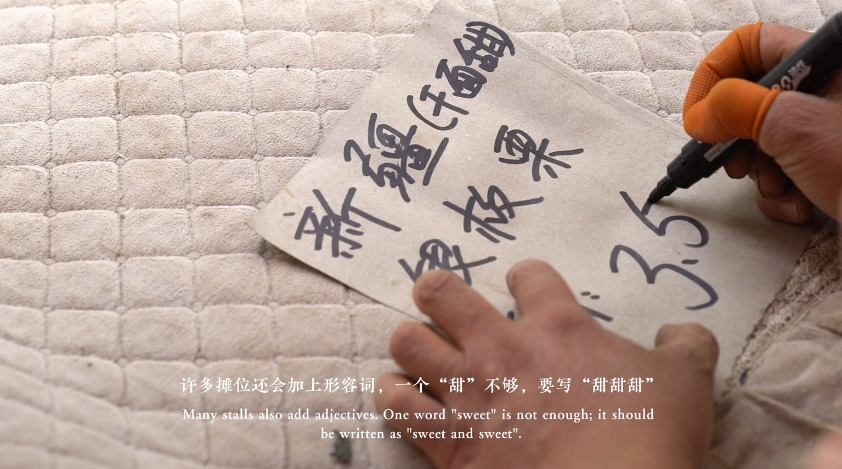 新疆(干面甜)
板栗
3.5
许多摊位还会加上形容词，一个“甜”不够，要写“甜甜甜”
Many stalls also add adjectives. One word "sweet" is not enough; it should
be written as "sweet and sweet".